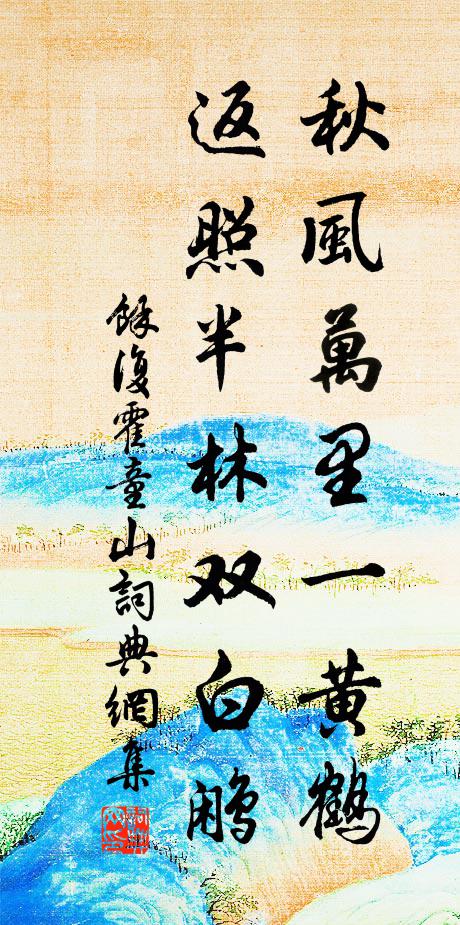 秋風萬里一黄鶴
返照半林双白鷴
餘復霍童山詞典網集